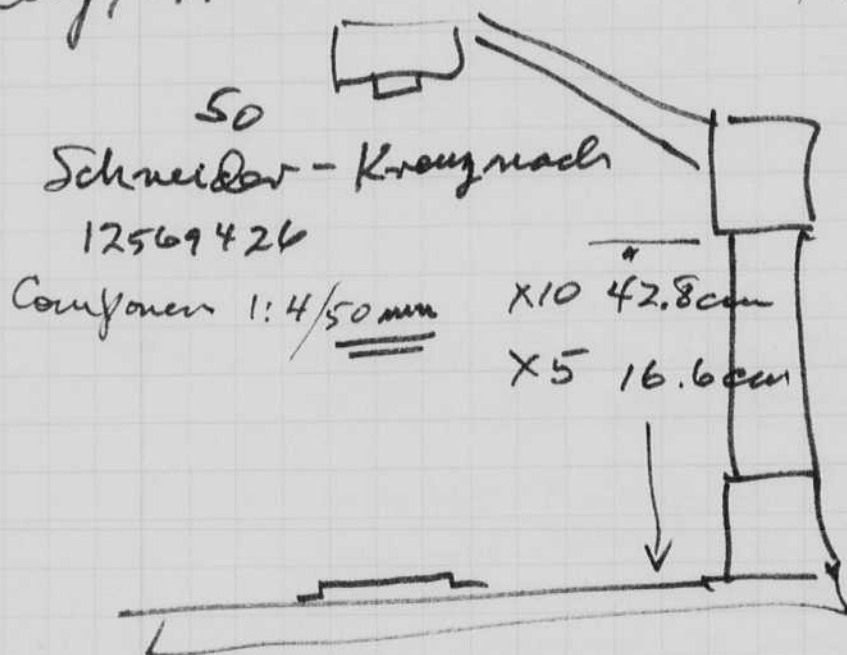 50
Schneider - Kreuznach
12569426
Componon 1:4/50 mm
X10 42.8cm
X5 16.6cm